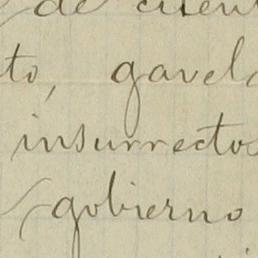 de cuen
to, gavel
insurrectos
gobierno